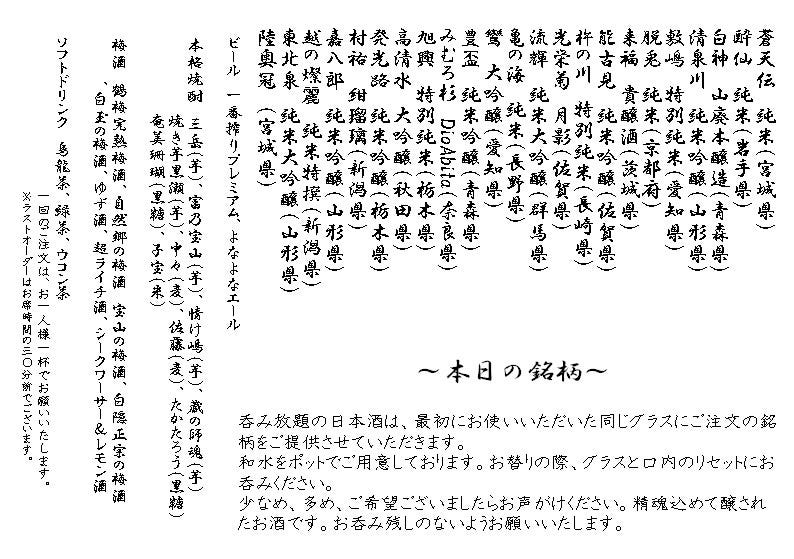 蒼天伝 純米(宮城県)
酔仙 純米(岩手県)
白神 山廃本醸造(青森県)
清泉川 純米吟醸(山形県)
敷嶋 特別純米(愛知県)
能古見 純米吟醸(佐賀県)
脱兎 純米(京都府)
来福 貴醸酒(茨城県)
杵の川 特別純米(長崎県)
光栄菊 月影(佐賀県)
流輝 純米大吟醸(群馬県)
亀の海 純米(長野県)
鸞 大吟醸(愛知県)
豊盃 純米吟醸(青森県)
みむろ杉 DioAbita(奈良県)
旭興 特別純米(栃木県)
高清水 大吟醸(秋田県)
発光路 純米吟醸(栃木県)
村祐 紺瑠璃(新潟県)
嘉八郎 純米吟醸(山形県)
越の燦麗 純米特撰(新潟県)
東北泉 純米大吟醸(山形県)
陸奥冠 (宮城県)
ビール 一番搾りプレミアム、よなよなエール
本格焼酎 三岳(芋)、富乃宝山(芋)、情け嶋(芋)、蔵の師魂(芋)
焼き芋黒瀬(芋)、中々(麦)、佐藤(麦)、たかたろう(黒糖)
奄美珊瑚(黒糖)、子宝(米)
梅酒 鶴梅完熟梅酒、自然郷の梅酒 宝山の梅酒、白隠正宗の梅酒
、白玉の梅酒、ゆず酒、超ライチ酒、シークワーサー&レモン酒
ソフトドリンク 烏龍茶、緑茶、ウコン茶
一回のご注文は、お一人様一杯でお願いいたします。
※ラストオーダーはお席時間の三〇分前でございます。
～本日の銘柄～
呑み放題の日本酒は、最初にお使いいただいた同じグラスにご注文の銘
柄をご提供させていただきます。
和水をポットでご用意しております。お替りの際、グラスと口内のリセットにお
呑みください。
少なめ、多め、ご希望ございましたらお声がけください。精魂込めて醸され
たお酒です。お呑み残しのないようお願いいたします。